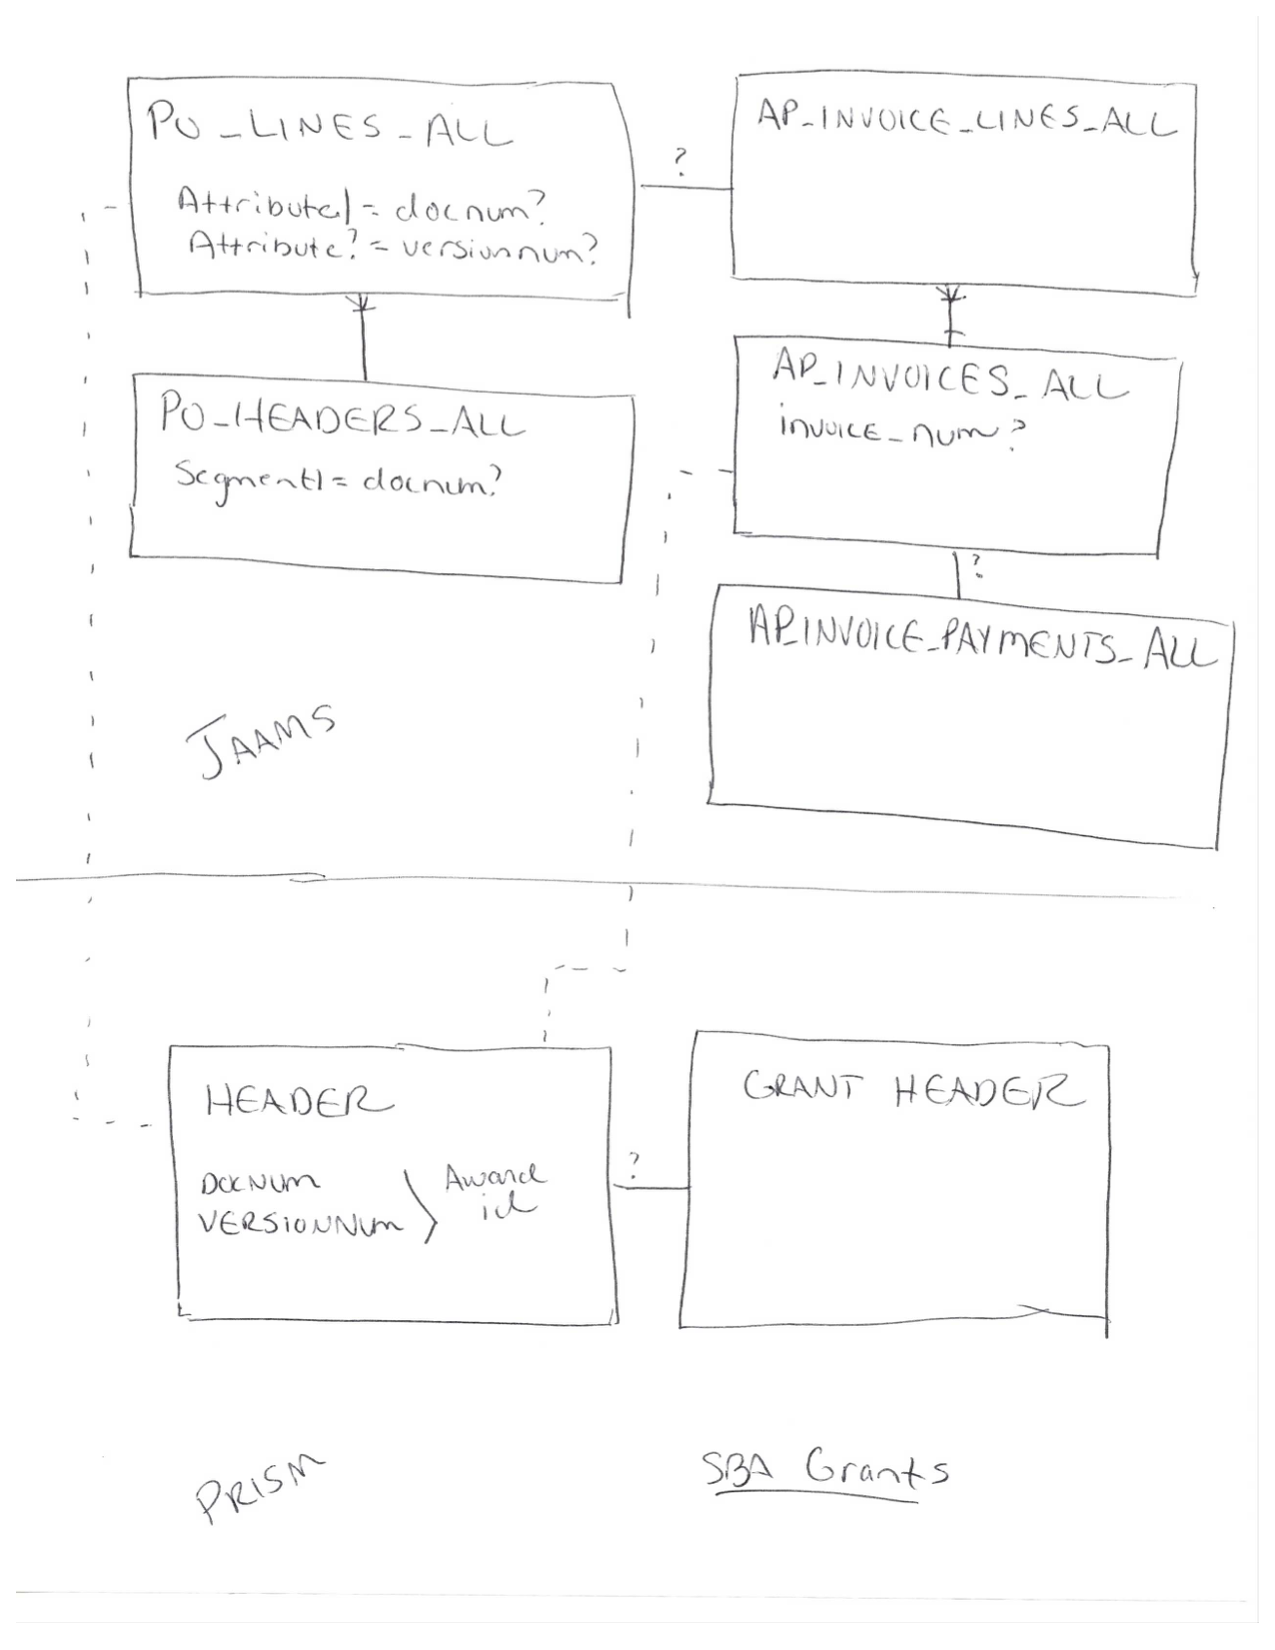 PO_LINES_ALL
Attribute1 = docnum?
Attribute? = versionnum?
?
AP_INVOICE_LINES_ALL
PO_HEADERS_ALL
Segment1 = docnum?
AP_INVOICES_ALL
invoice_num?
?
AP_INVOICE_PAYMENTS_ALL
JAAMS
HEADER
DOCNUM
VERSIONNUM
Award
id
?
GRANT HEADER
PRISM
SBA Grants